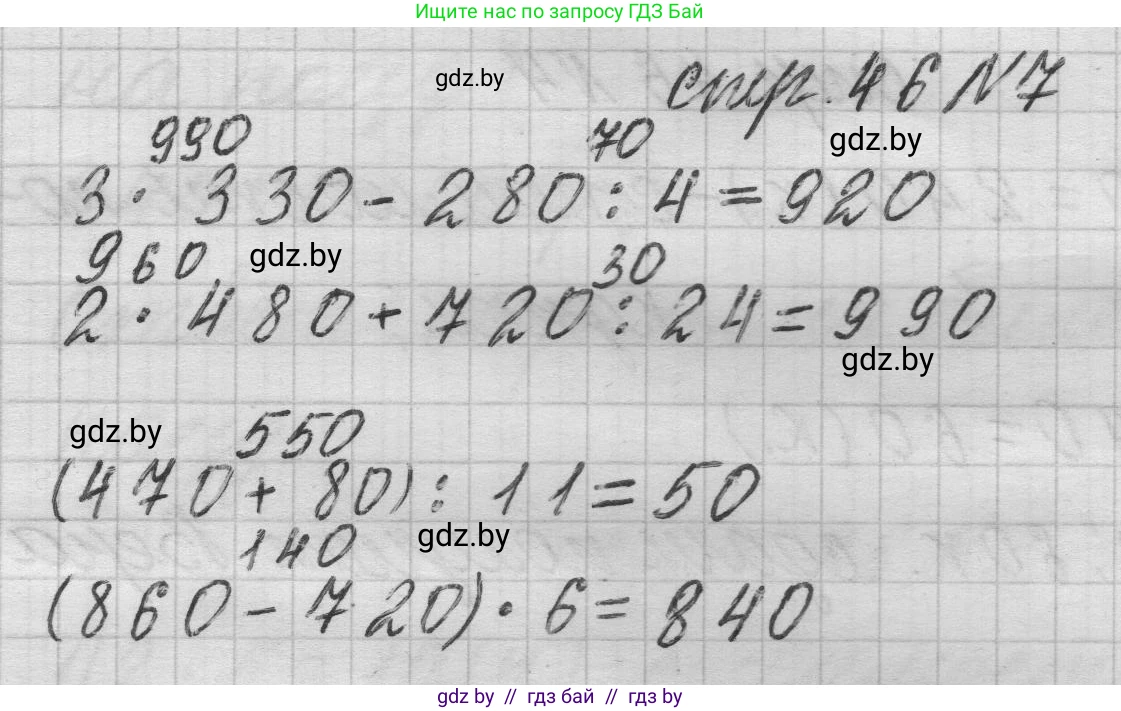 Ищите нас по запросу ГДЗ Бай
gdz.by стр. 46 №7
990 70 gdz.by
3 · 330 - 280 : 4 = 920
960 gdz.by 30
2 · 480 + 720 : 24 = 990
gdz.by
gdz.by 550
(470 + 80) : 11 = 50
140 gdz.by
(860 - 720) · 6 = 840
gdz by // гдз бай // гдз by